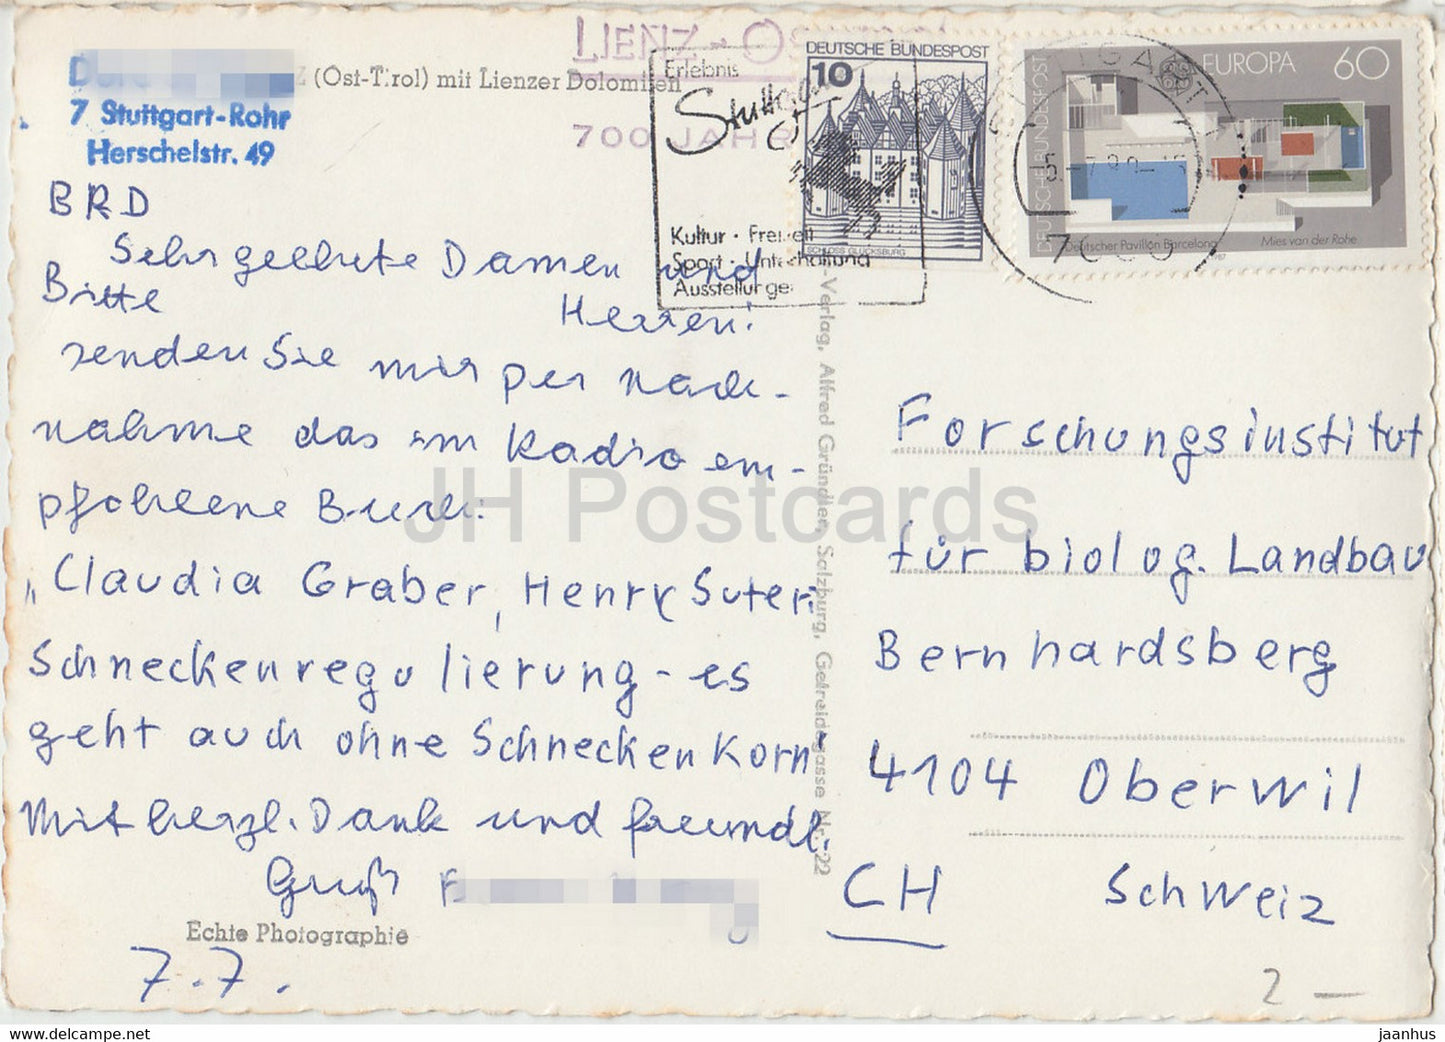 LIENZ - 
700 JAHR
(Ost-Tirol) mit Lienzer Dolomiten
7 Stuttgart-Rohr
Herschelstr. 49
BRD
Erlebnis
Stuttgart
Kultur · Freizeit
Sport · Unterhaltung
Ausstellunge
DEUTSCHE BUNDESPOST
10
SCHLOSS GLÜCKSBURG
DEUTSCHE BUNDESPOST
EUROPA 60
Deutscher Pavillon Barcelona
Mies van der Rohe
7000
Sehr geehrte Damen und
Herren!
Bitte
senden Sie mir per Nach-
nahme das im Radio em-
pfohlene Buch:
„Claudia Graber, Henry Suter:
Schneckenregulierung - es
geht auch ohne Schneckenkorn
Mit herzl. Dank und freundl.
Gruß
Echte Photographie
7.7.
-Verlag, Alfred Gründler, Salzburg, Getreidegasse Nr. 22
Forschungsinstitut
für biolog. Landbau
Bernhardsberg
4104 Oberwil
CH Schweiz
2 —
JH Postcards
www.delcampe.net
jaanhus